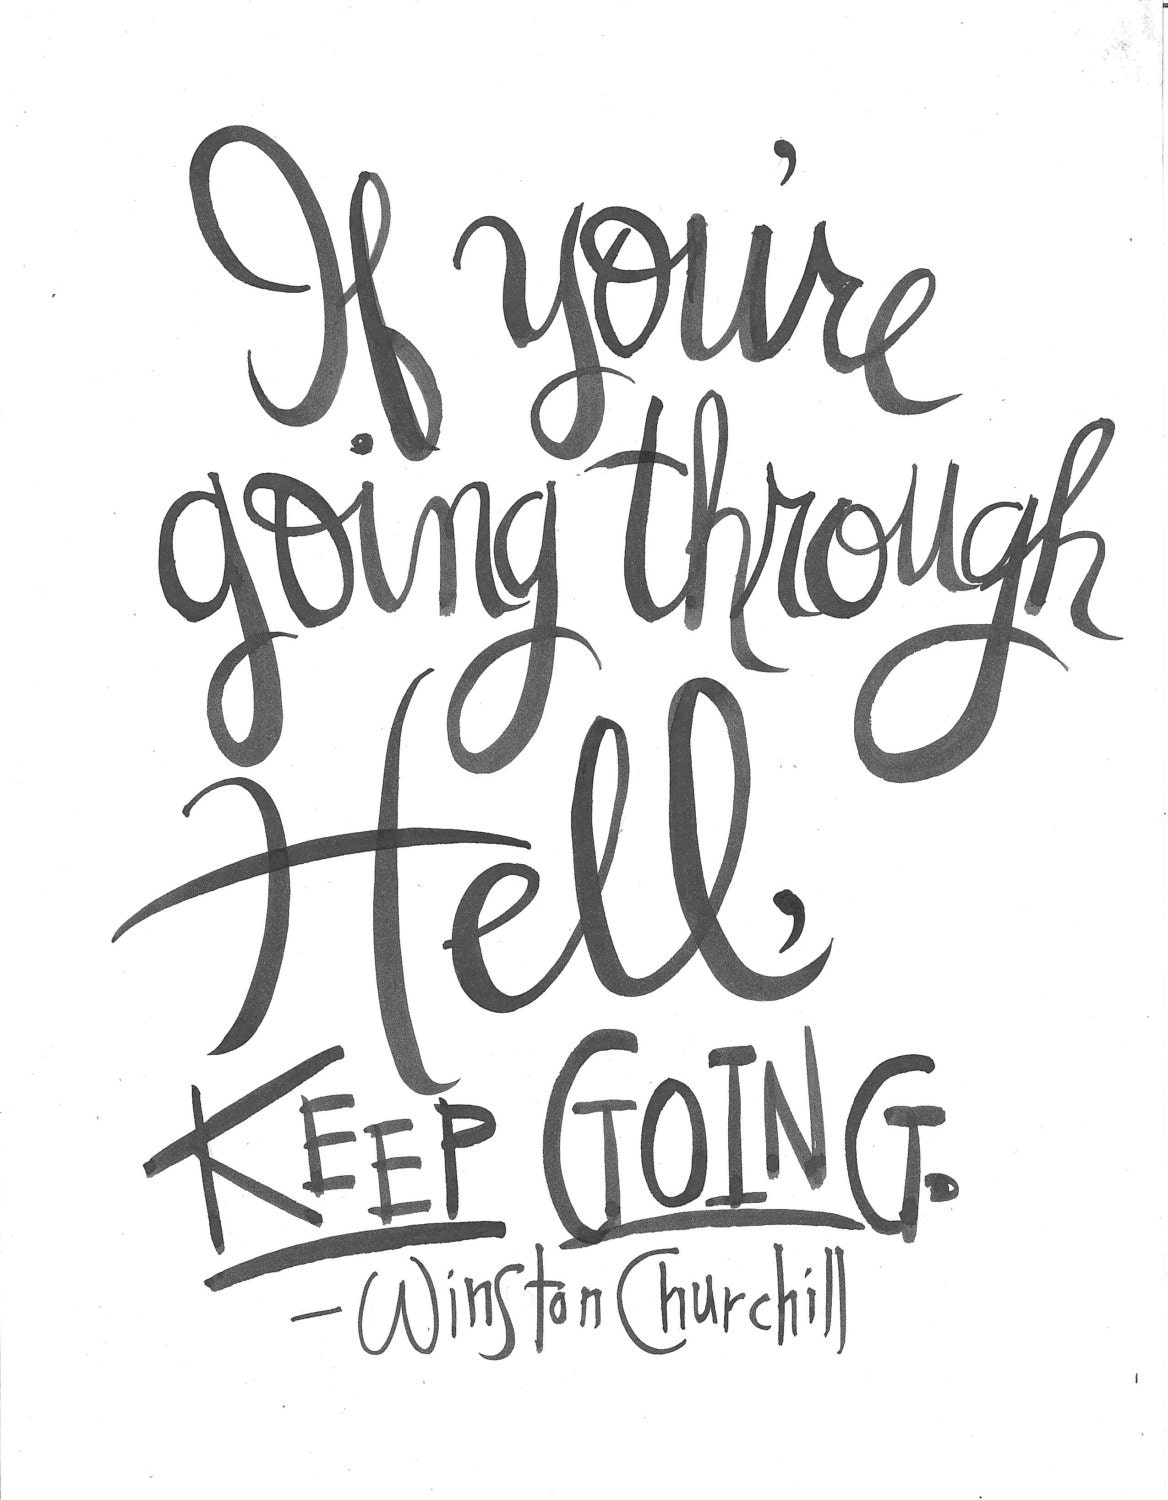 If you're
going through
Hell,
KEEP GOING.
- Winston Churchill